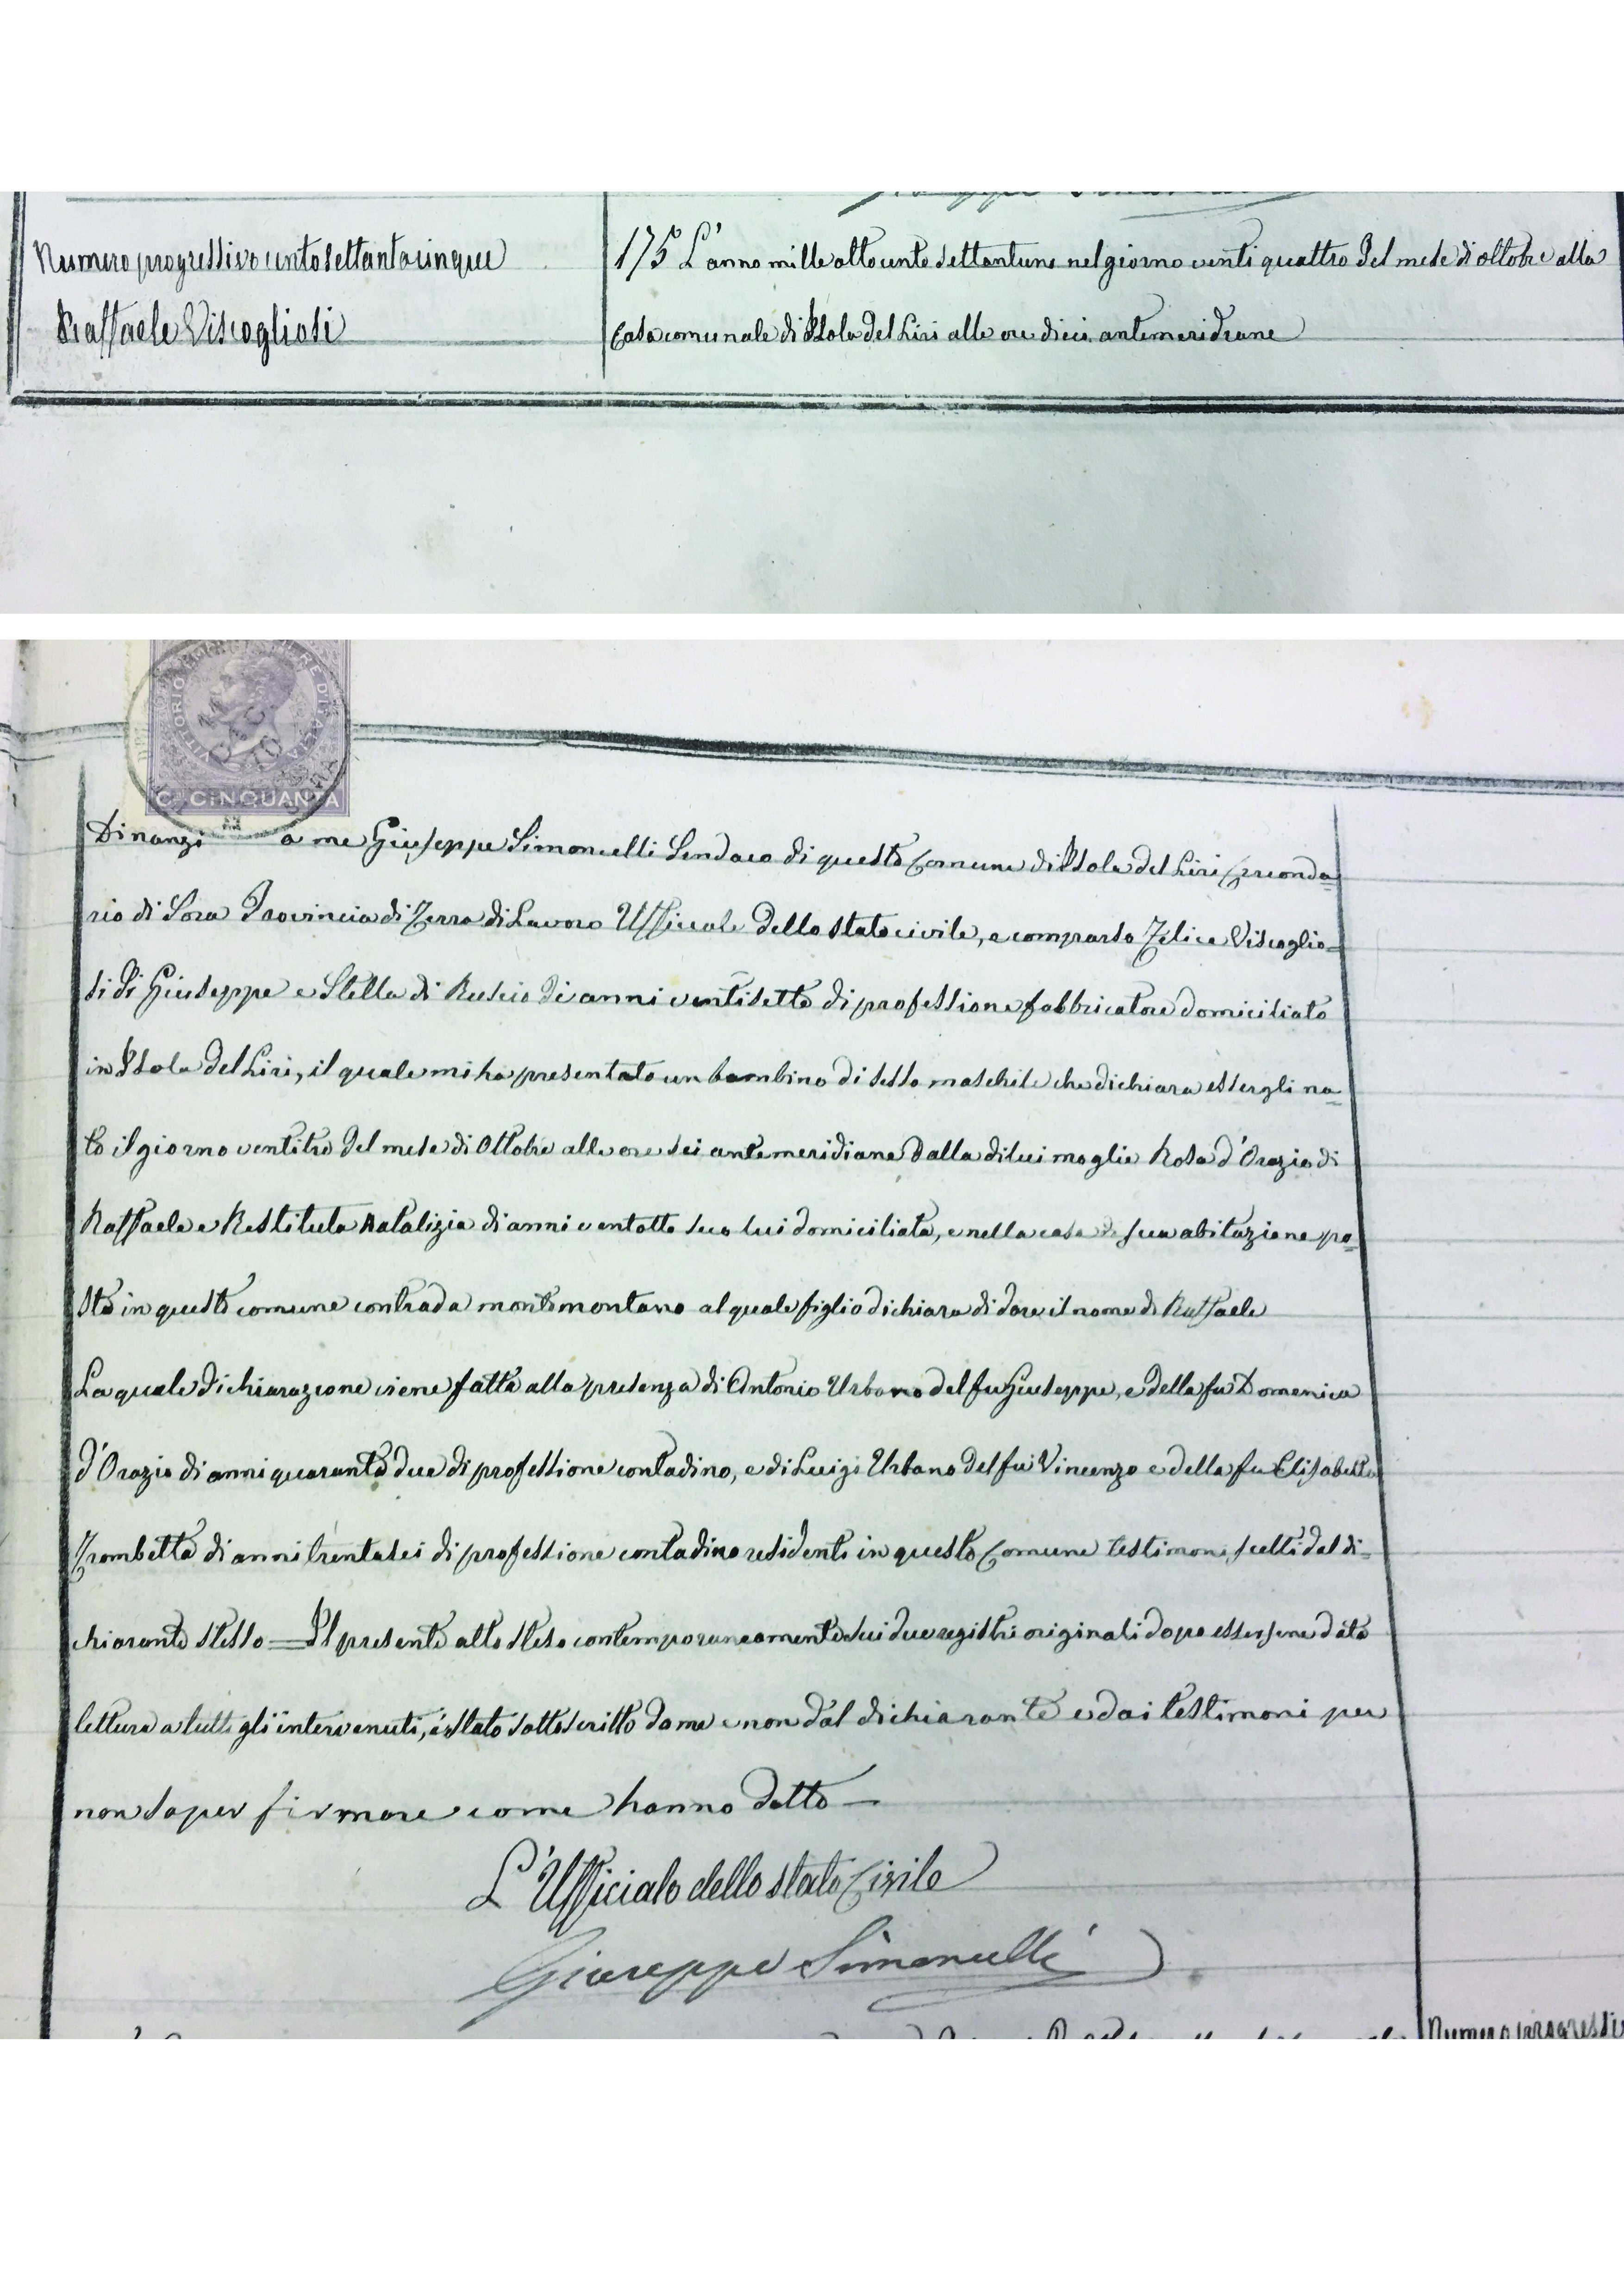 Numero progressivo centosettantacinque
Raffaele Viscogliosi
175 L'anno mille ottocento settantuno nel giorno venti quattro del mese di ottobre alla
Casa comunale di Isola del Liri alle ore dieci antemeridiane
VITTORIO EMAN II RE D'ITALIA
11 DEC 70
C. CINQUANTA
Dinanzi a me Giuseppe Simoncelli Sindaco di questo Comune di Isola del Liri Circonda=
rio di Sora Provincia di Terra di Lavoro Ufficiale dello stato civile, e comparso Felice Viscoglio=
si di Giuseppe e Stella di Ruscio di anni ventisette di professione fabbricatore domiciliato
in Isola del Liri, il quale mi ha presentato un bambino di sesso maschile che dichiara essergli na=
to il giorno ventitre del mese di Ottobre alle ore sei antemeridiane dalla di lui moglie Rosa d'Orazio di
Raffaele e Restituta Natalizia di anni ventotto seco lui domiciliata, e nella casa di sua abitazione po=
sta in questo comune contrada montemontano al quale figlio dichiara di dare il nome di Raffaele
La quale dichiarazione viene fatta alla presenza di Antonio Urbano del fu Giuseppe, e della fu Domenica
d'Orazio di anni quaranta due di professione contadino, e di Luigi Urbano del fu Vincenzo e della fu Elisabetta
Trombetta di anni trentasei di professione contadino residenti in questo Comune testimoni scelti dal di=
chiarante stesso = Il presente atto steso contemporaneamente sui due registri originali dopo essersene data
lettura a tutti gli intervenuti, è stato sottoscritto da me e non dal dichiarante e dai testimoni per
non saper firmare come hanno detto —
L'Ufficiale dello stato Civile
Giuseppe Simoncelli
Numero progressivo